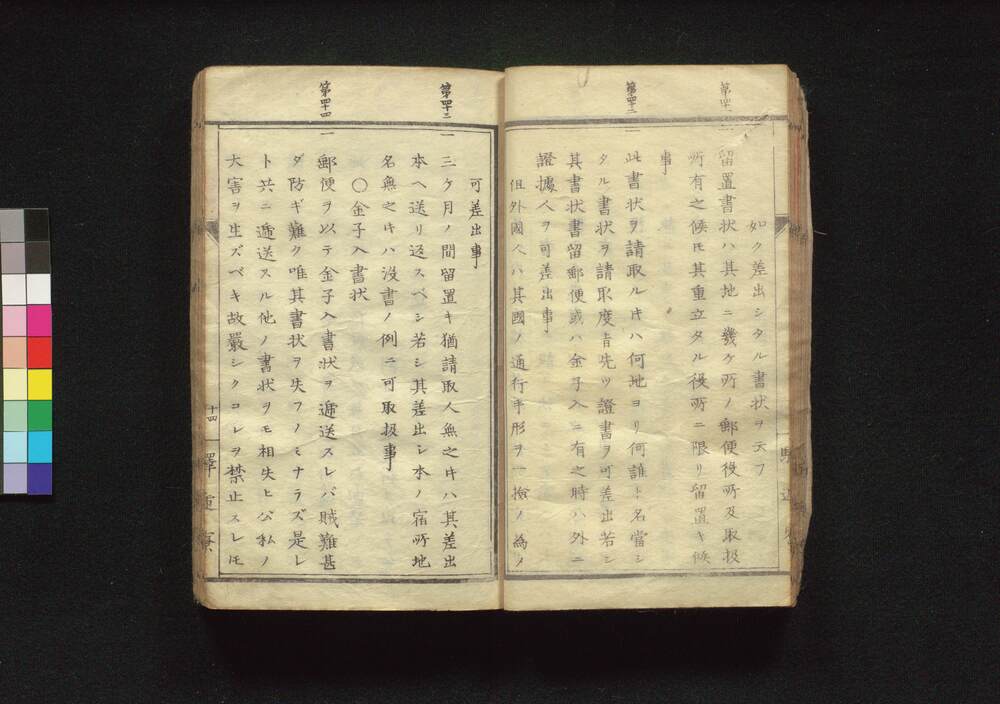 如ク差出シタル書状ヲ云フ
第四十一
一
留置書状ハ其地ニ幾ケ所ノ郵便役所及取扱
所有之候モ其重立タル役所ニ限リ留置キ候
事
第四十二
一
此書状ヲ請取ル片ハ何地ヨリ何誰ト名當シ
タル書状ヲ請取度旨先ツ證書ヲ可差出若シ
其書状書留郵便或ハ金子入ニ有之時ハ外ニ
證據人ヲ可差出事
但外國人ハ其國ノ通行手形ヲ一検ノ為ノ
可差出事
第四十三
一
三ケ月ノ間留置キ猶請取人無之片ハ其差出
本ヘ送リ返スベシ若シ其差出シ本ノ宿所地
名無之片ハ没書ノ例ニ可取扱事
〇金子入書状
第四十四
一
郵便ヲ以テ金子入書状ヲ遞送スレバ賊難甚
ダ防ギ難ク唯其書状ヲ失フノミナラズ是レ
ト共ニ遞送スル他ノ書状ヲモ相失ヒ公私ノ
大害ヲ生ズベキ故嚴シクコレヲ禁止スレ𪜈
十四
驛逓寮